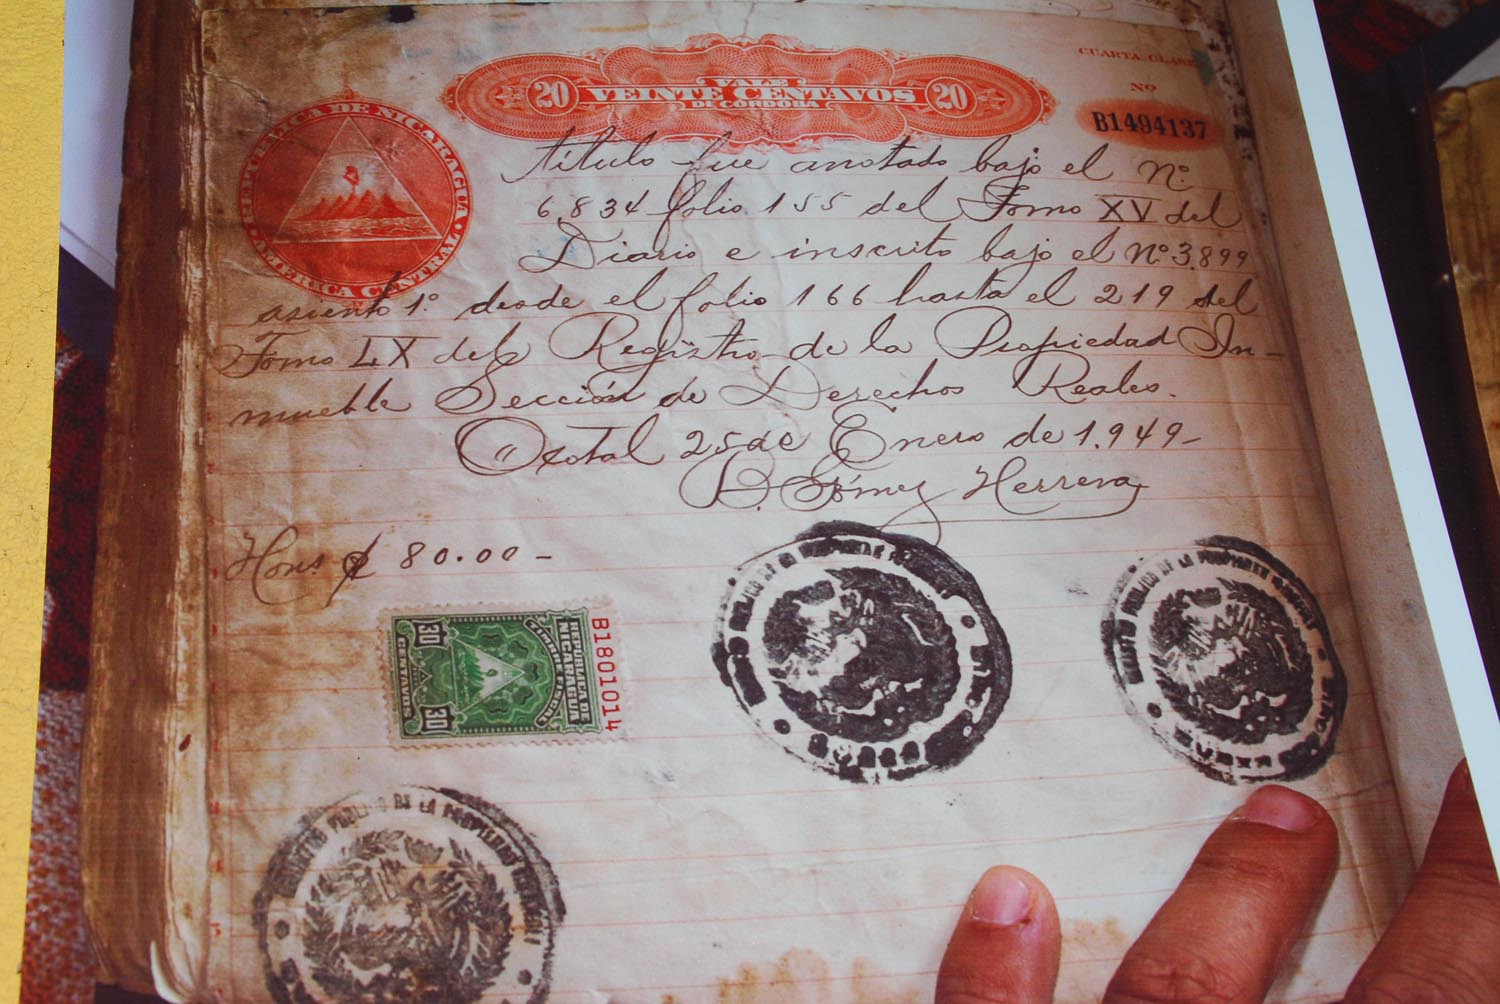 CUARTA CLASE
VALE
20 VEINTE CENTAVOS 20
DE CORDOBA
Nº
B1494137
REPUBLICA DE NICARAGUA
AMERICA CENTRAL
título fue anotado bajo el Nº
6,834 folio 155 del Tomo XV del
Diario e inscrito bajo el Nº 3.899
asiento 1º desde el folio 166 hasta el 219 del
Tomo LX del Registro de la Propiedad In-
mueble Sección de Derechos Reales.
Ocotal 25 de Enero de 1.949-
B. Gómez Herrera
Hons. ₡ 80.00 -
REPUBLICA DE
NICARAGUA
30 30
CENTAVOS
B1801014
PUBLICO DE LA PROPIEDAD
PUBLICO DE LA PROPIEDAD
PUBLICO DE LA PROPIEDAD